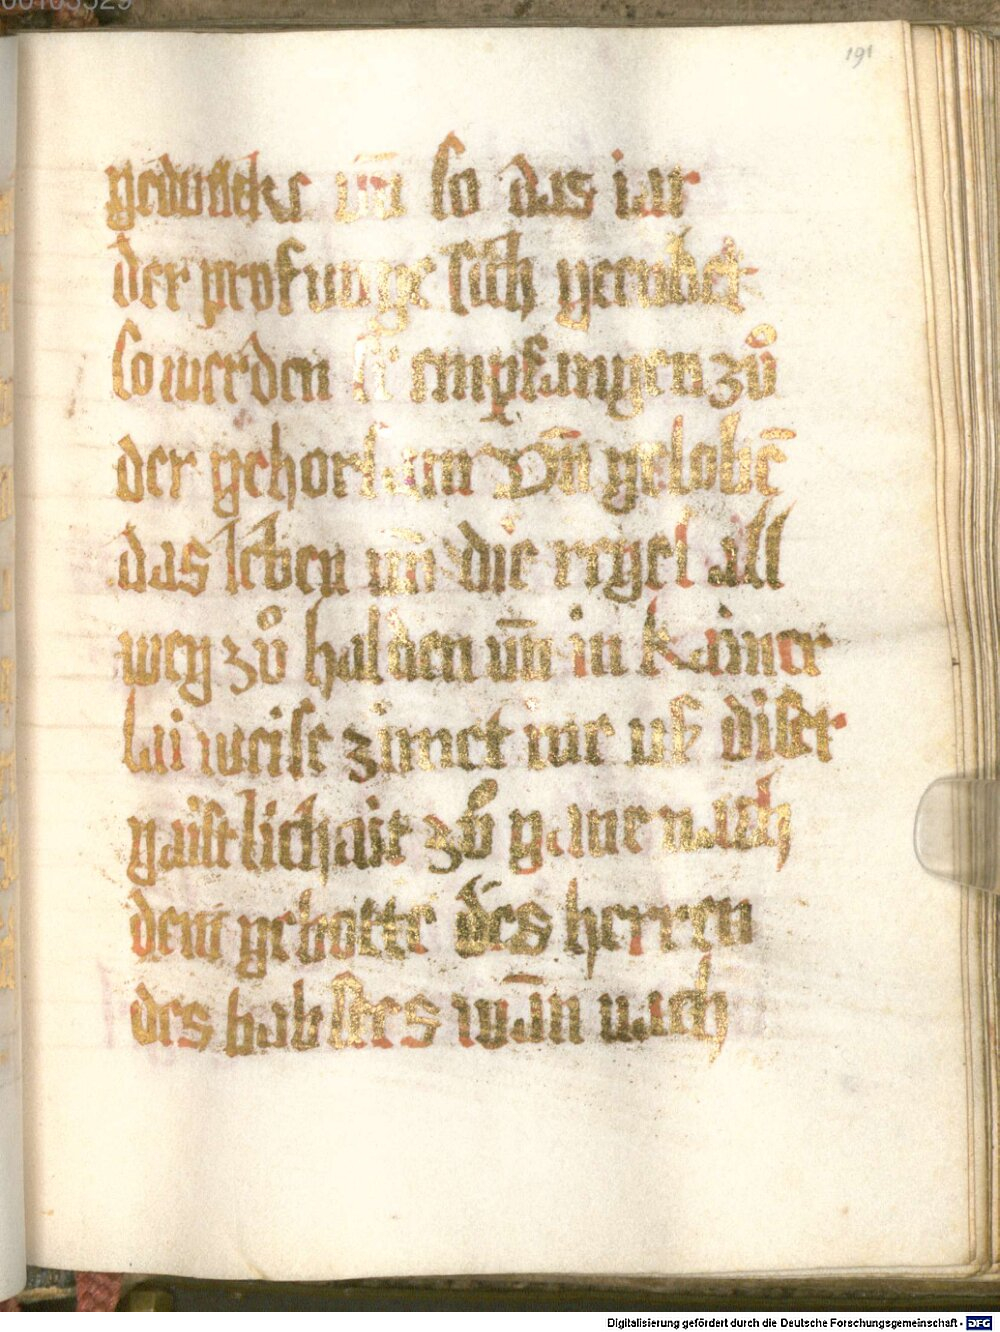 191
gedunckt vn̄ so das iar
der profunge sich geendet
so werden si empfangen zů
der gehorsam vn̄ gelobē
das leben vn̄ die regel all
weg zů halden vn̄ in kainer
lai weise zimet ine us diser
gaistlichait zů gane nach
dem gebotte des herren
des babstes wān nach
Digitalisierung gefördert durch die Deutsche Forschungsgemeinschaft - DFG